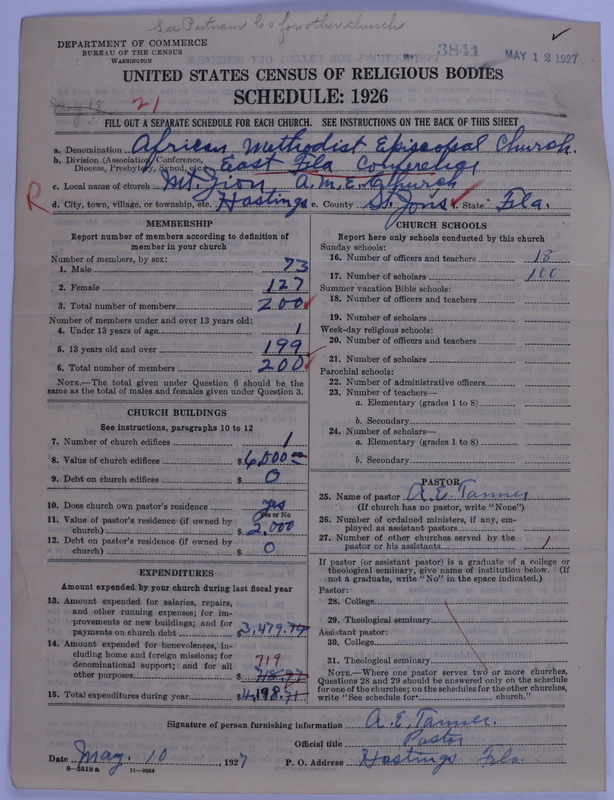 See Putnam Co for other church
DEPARTMENT OF COMMERCE
BUREAU OF THE CENSUS
WASHINGTON
3841
MAY 12 1927
UNITED STATES CENSUS OF RELIGIOUS BODIES
SCHEDULE: 1926
21
FILL OUT A SEPARATE SCHEDULE FOR EACH CHURCH. SEE INSTRUCTIONS ON THE BACK OF THIS SHEET
a. Denomination African Methodist Episcopal Church.
b. Division (Association, Conference, Diocese, Presbytery, Synod, etc.) East Fla Conference
c. Local name of church Mt Zion A.M.E. Church
R
d. City, town, village, or township, etc. Hastings e. County St. Jons f. State Fla.
MEMBERSHIP
Report number of members according to definition of
member in your church
Number of members, by sex:
1. Male 73
2. Female 127
3. Total number of members 200
Number of members under and over 13 years old:
4. Under 13 years of age 1
5. 13 years old and over 199
6. Total number of members 200
NOTE.—The total given under Question 6 should be the
same as the total of males and females given under Question 3.
CHURCH BUILDINGS
See instructions, paragraphs 10 to 12
7. Number of church edifices 1
8. Value of church edifices $6,000 00
9. Debt on church edifices $ 0
10. Does church own pastor's residence yes
Yes or No
11. Value of pastor's residence (if owned by
church) $2,000
12. Debt on pastor's residence (if owned by
church) $ 0
EXPENDITURES
Amount expended by your church during last fiscal year
13. Amount expended for salaries, repairs,
and other running expenses; for im-
provements or new buildings; and for
payments on church debt $3,479.74
14. Amount expended for benevolences, in-
cluding home and foreign missions; for
denominational support; and for all
other purposes 719
$718.97
15. Total expenditures during year $4,198.71
CHURCH SCHOOLS
Report here only schools conducted by this church
Sunday schools:
16. Number of officers and teachers 18
17. Number of scholars 100
Summer vacation Bible schools:
18. Number of officers and teachers
19. Number of scholars
Week-day religious schools:
20. Number of officers and teachers
21. Number of scholars
Parochial schools:
22. Number of administrative officers
23. Number of teachers—
a. Elementary (grades 1 to 8)
b. Secondary
24. Number of scholars—
a. Elementary (grades 1 to 8)
b. Secondary
PASTOR
25. Name of pastor A. E. Tanner
(If church has no pastor, write "None")
26. Number of ordained ministers, if any, em-
ployed as assistant pastors
27. Number of other churches served by the
pastor or his assistants 1
If pastor (or assistant pastor) is a graduate of a college or
theological seminary, give name of institution below. (If
not a graduate, write "No" in the space indicated.)
Pastor:
28. College
29. Theological seminary
Assistant pastor:
30. College
31. Theological seminary
NOTE.—Where one pastor serves two or more churches,
Questions 28 and 29 should be answered only on the schedule
for one of the churches; on the schedules for the other churches,
write "See schedule for church."
Signature of person furnishing information A. E. Tanner.
Official title Pastor
Date May. 10, 1927 P. O. Address Hastings Fla.
6-5518 a 11-9054